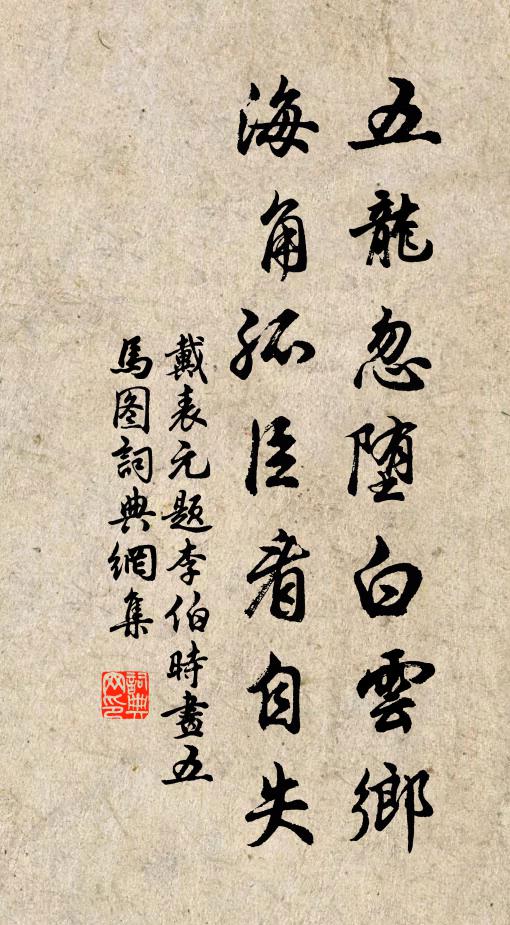 五龍忽堕白雲鄉
海角孤臣看自失
戴表元题李伯時畫五
馬图詞典網集
詞典
网印